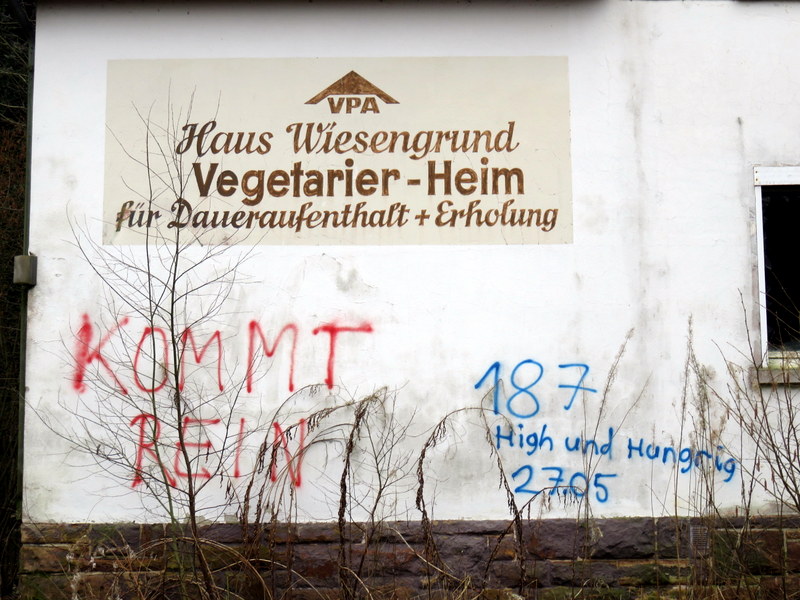 VPA
Haus Wiesengrund
Vegetarier-Heim
für Daueraufenthalt + Erholung
KOMMT
REIN
187
High und Hungrig
27.05